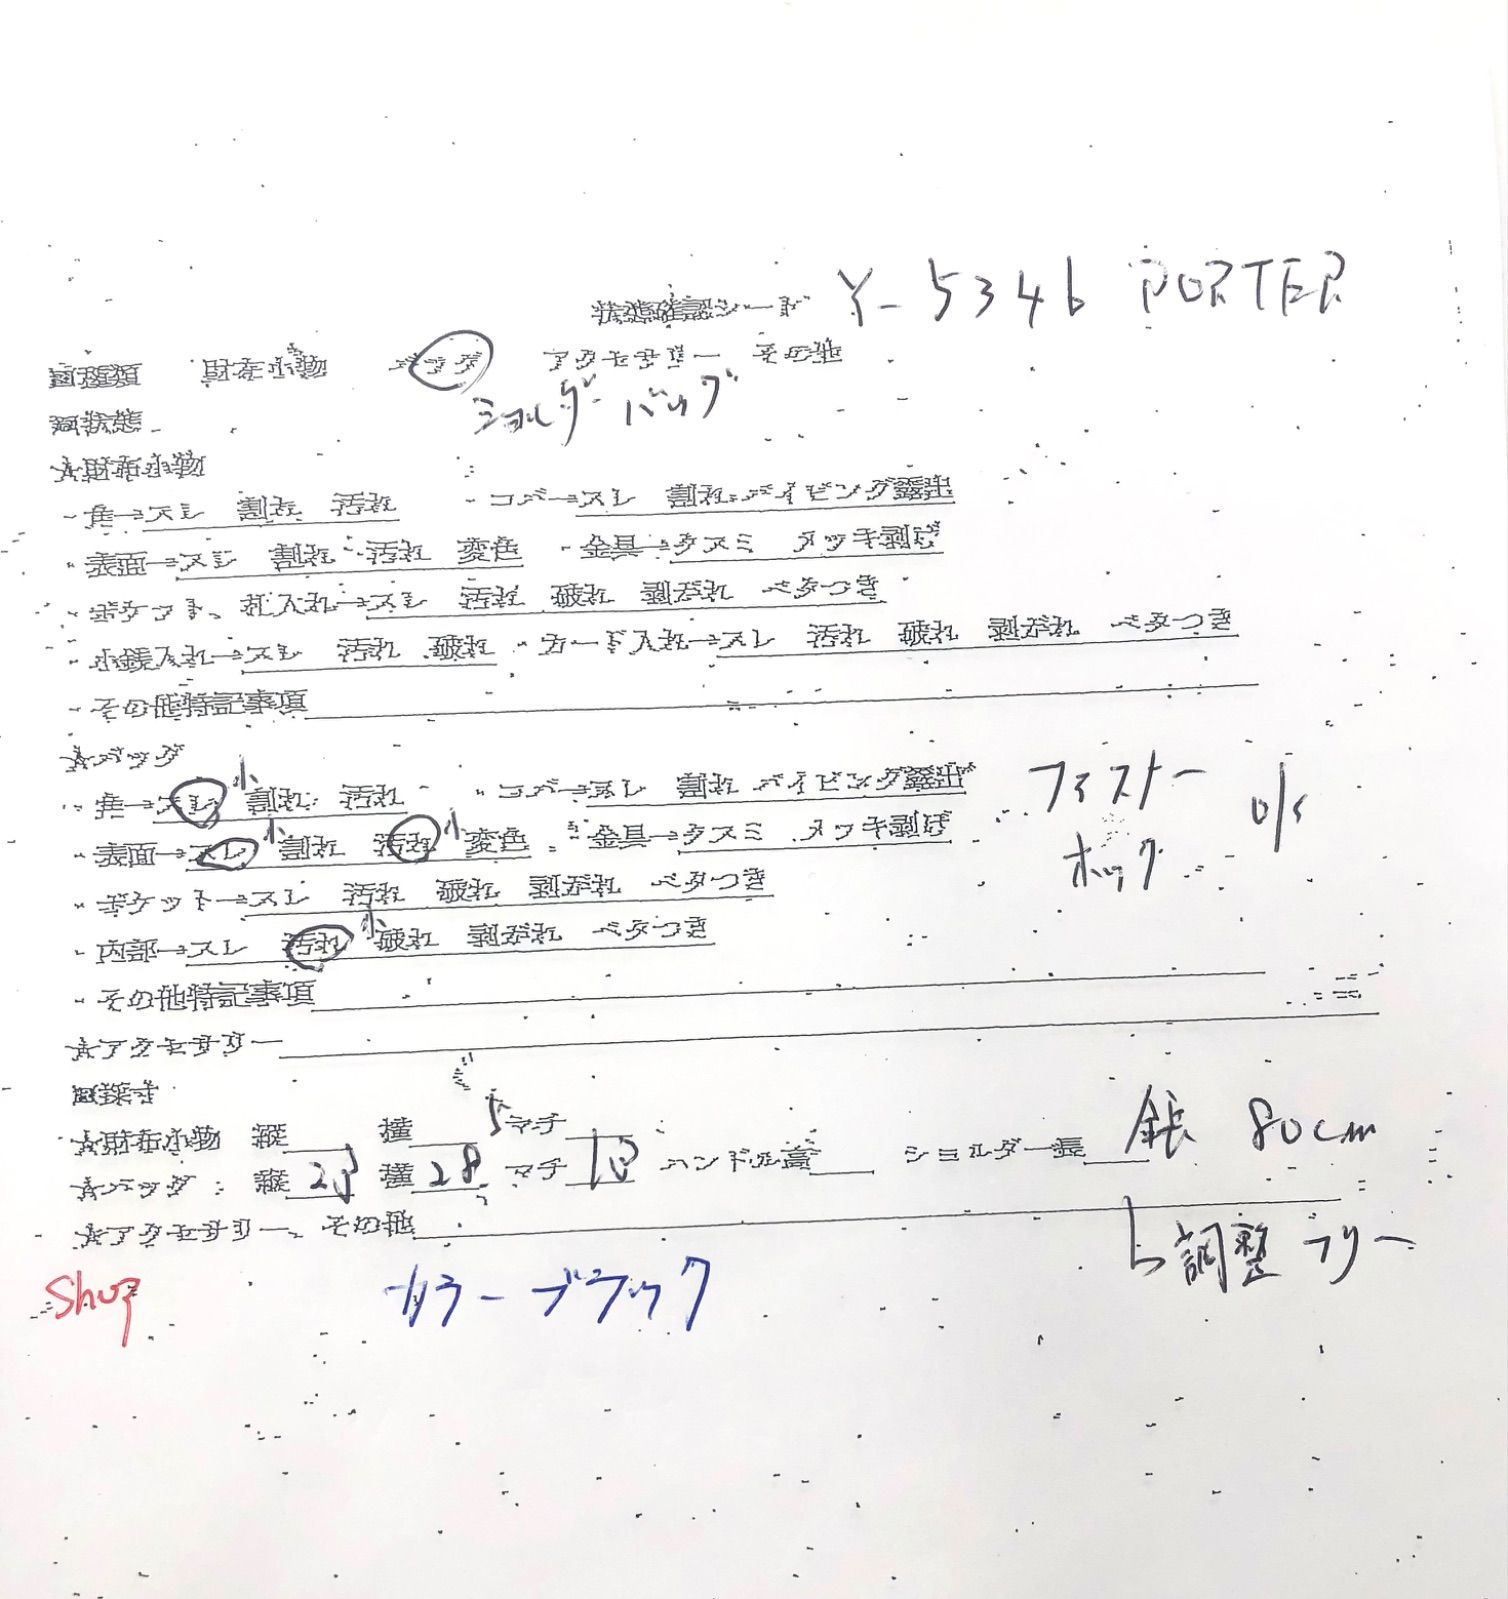 状態確認シード Y-5346 PORTER
種類 財布小物 バッグ アクセサリー その他
ショルダーバッグ
状態
☆財布小物
・角→スレ 割れ 汚れ ・コバ→スレ 割れ パイピング露出
・表面→スレ 割れ 汚れ 変色 ・金具→クスミ メッキ剥げ
・ポケット、札入れ→スレ 汚れ 破れ 剥がれ ベタつき
・小銭入れ→スレ 汚れ 破れ ・カード入れ→スレ 汚れ 破れ 剥がれ ベタつき
・その他特記事項
☆バッグ
・角→スレ 小 割れ 汚れ ・コバ→スレ 割れ パイピング露出
・表面→スレ 小 割れ 汚れ 小 変色 ・金具→クスミ メッキ剥げ
ファスナー
ホック
・ポケット→スレ 汚れ 破れ 剥がれ ベタつき
・内部→スレ 汚れ 小 破れ 剥がれ ベタつき
・その他特記事項
☆アクセサリー
採寸
☆財布小物 縦 横 マチ
☆バッグ: 縦 23 横 28 マチ ハンドル高 ショルダー長 80cm
☆アクセサリー、その他
↳調整フリー
カラーブラック